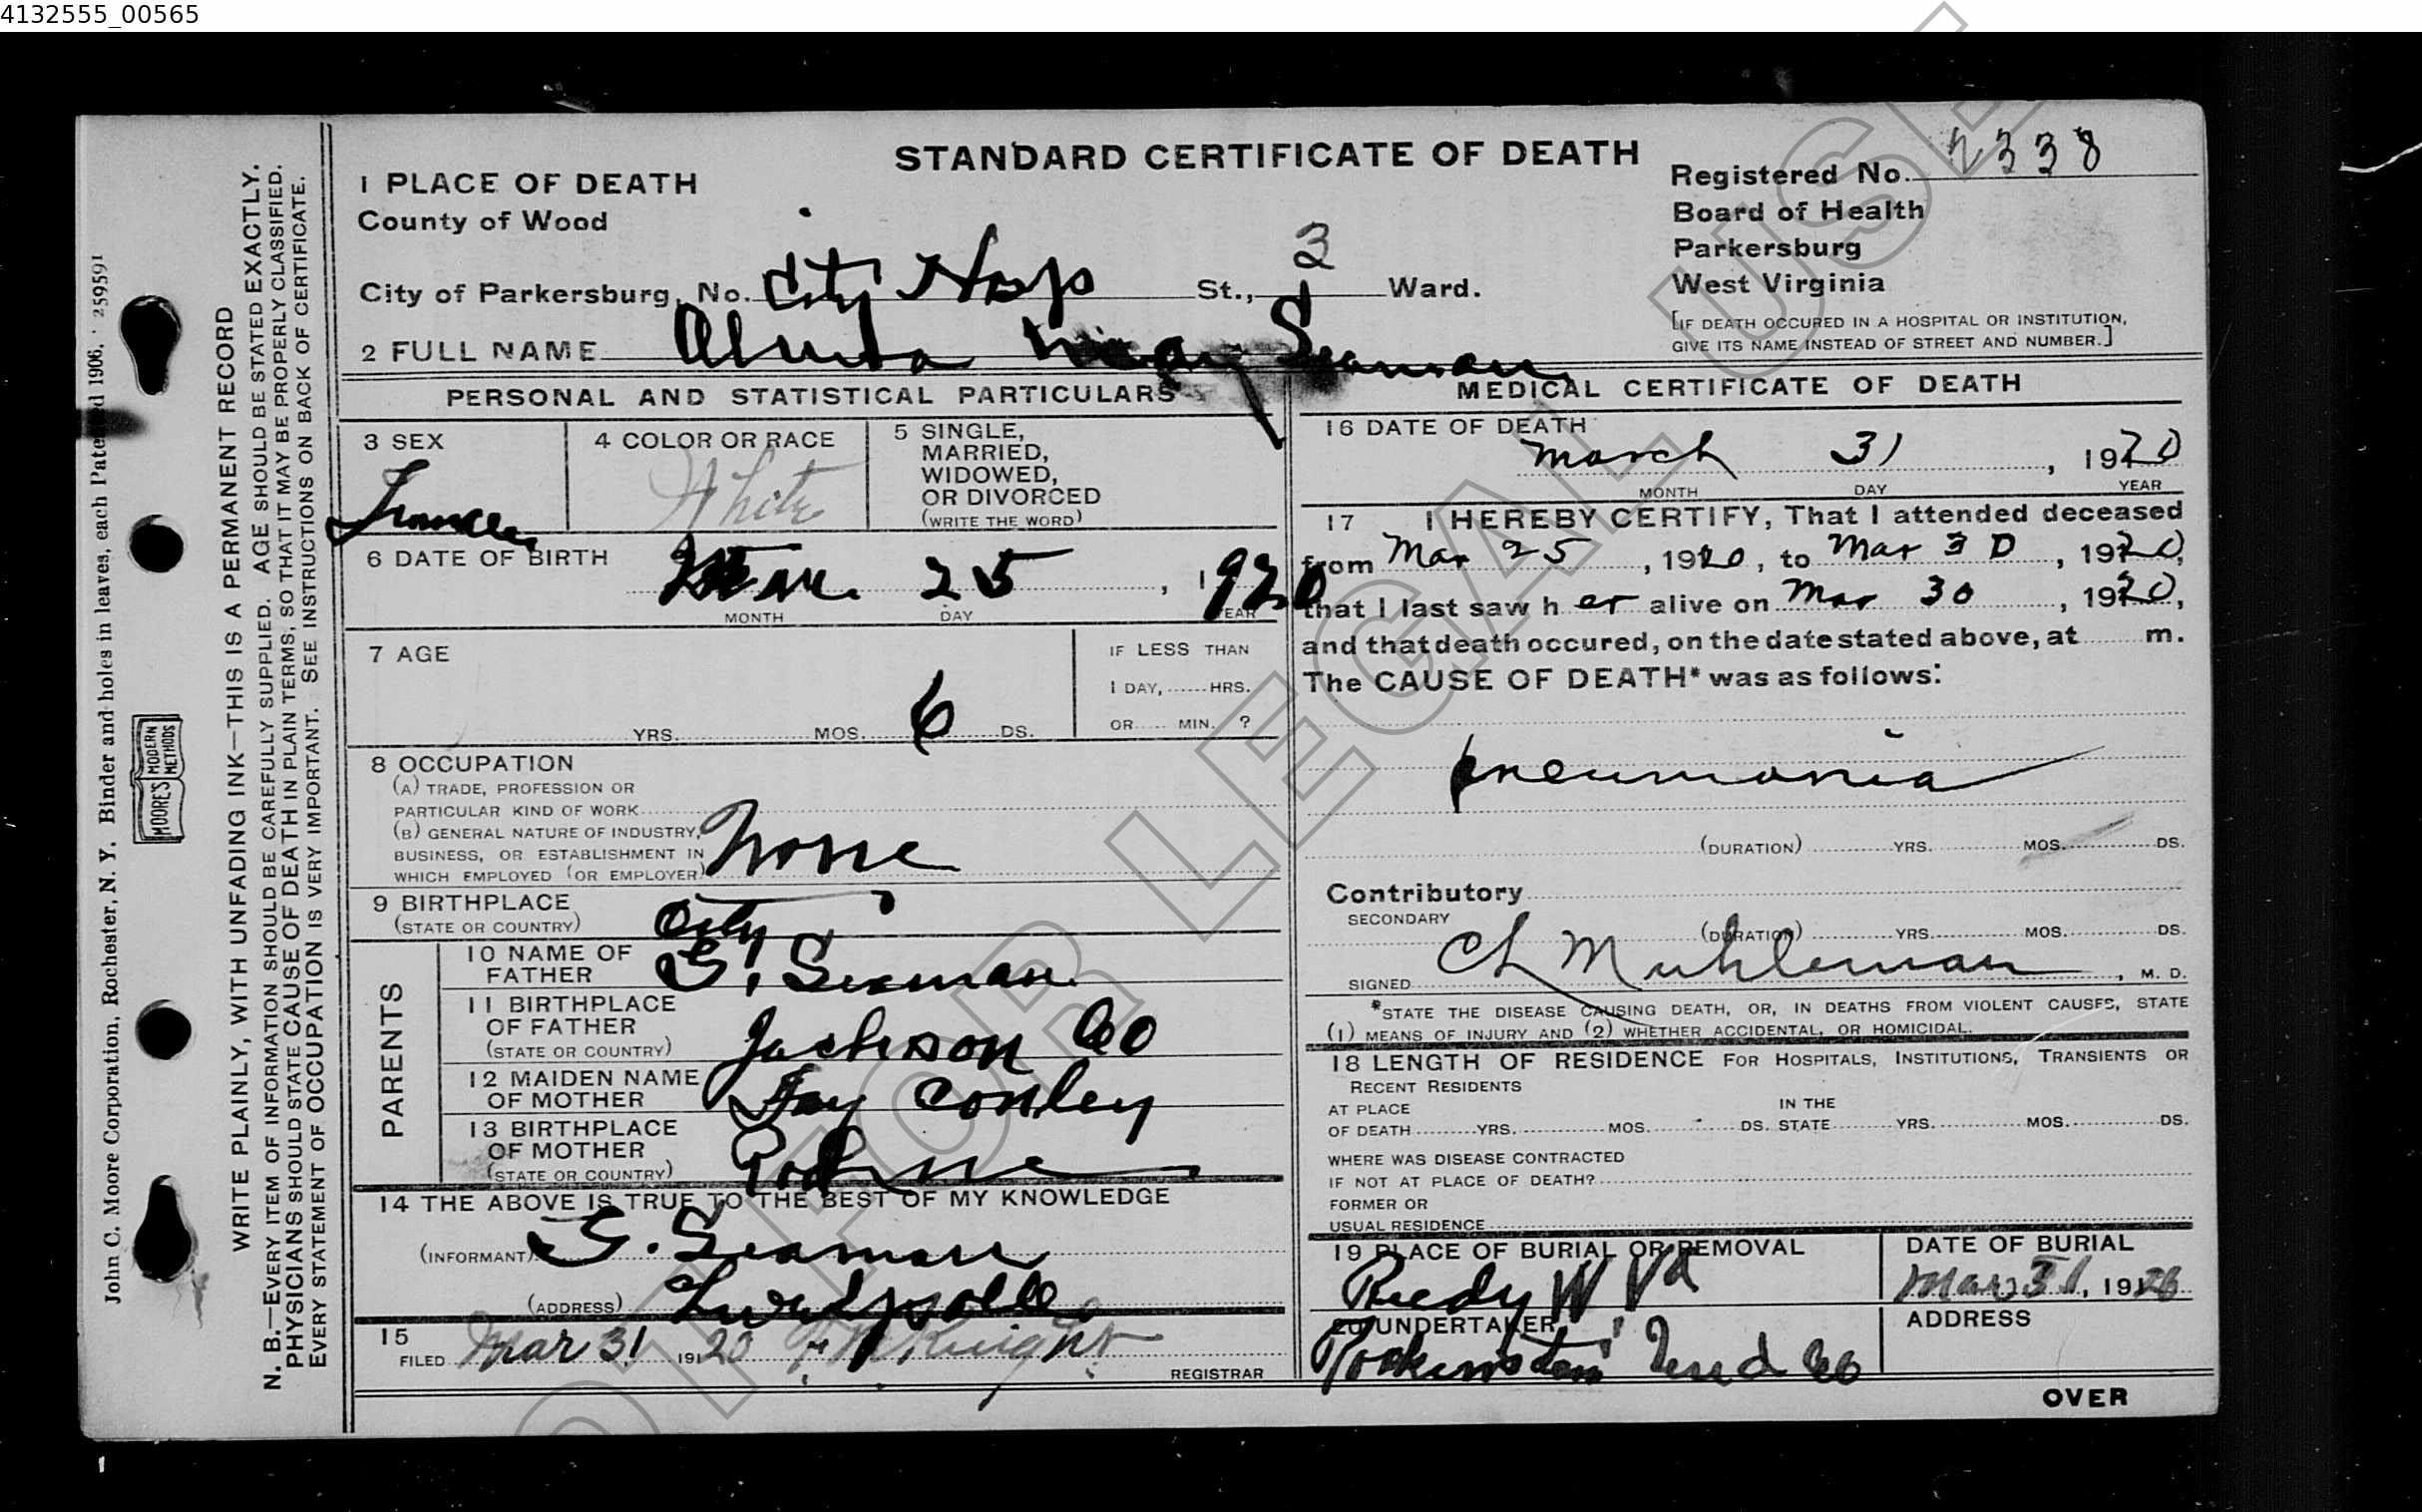 4132555_00565
STANDARD CERTIFICATE OF DEATH
1 PLACE OF DEATH
County of Wood
City of Parkersburg, No. City Hosp St., 3 Ward.
Registered No. 2338
Board of Health
Parkersburg
West Virginia
[IF DEATH OCCURED IN A HOSPITAL OR INSTITUTION,
GIVE ITS NAME INSTEAD OF STREET AND NUMBER.]
2 FULL NAME Seaman
PERSONAL AND STATISTICAL PARTICULARS
3 SEX
4 COLOR OR RACE White
5 SINGLE,
MARRIED,
WIDOWED,
OR DIVORCED
(WRITE THE WORD)
6 DATE OF BIRTH
Mar. 25, 1920
MONTH DAY YEAR
7 AGE
YRS. MOS. 6 DS.
IF LESS THAN
1 DAY, HRS.
OR MIN. ?
8 OCCUPATION
(A) TRADE, PROFESSION OR
PARTICULAR KIND OF WORK
(B) GENERAL NATURE OF INDUSTRY,
BUSINESS, OR ESTABLISHMENT IN
WHICH EMPLOYED (OR EMPLOYER) None
9 BIRTHPLACE
(STATE OR COUNTRY) City
PARENTS
10 NAME OF
FATHER S. Seaman
11 BIRTHPLACE
OF FATHER
(STATE OR COUNTRY) Jackson Co
12 MAIDEN NAME
OF MOTHER Fay Conley
13 BIRTHPLACE
OF MOTHER
(STATE OR COUNTRY)
14 THE ABOVE IS TRUE TO THE BEST OF MY KNOWLEDGE
(INFORMANT) S. Seaman
(ADDRESS)
15
FILED Mar 31 1920 McKnight
REGISTRAR
MEDICAL CERTIFICATE OF DEATH
16 DATE OF DEATH
March 31, 1920
MONTH DAY YEAR
17 I HEREBY CERTIFY, That I attended deceased
from Mar 25, 1920, to Mar 30, 1920,
that I last saw her alive on Mar 30, 1920,
and that death occured, on the date stated above, at m.
The CAUSE OF DEATH* was as follows:
pneumonia
(DURATION) YRS. MOS. DS.
Contributory
SECONDARY
(DURATION) YRS. MOS. DS.
SIGNED Ch Muhleman, M. D.
*STATE THE DISEASE CAUSING DEATH, OR, IN DEATHS FROM VIOLENT CAUSES, STATE
(1) MEANS OF INJURY AND (2) WHETHER ACCIDENTAL, OR HOMICIDAL.
18 LENGTH OF RESIDENCE FOR HOSPITALS, INSTITUTIONS, TRANSIENTS OR
RECENT RESIDENTS
AT PLACE IN THE
OF DEATH YRS. MOS. DS. STATE YRS. MOS. DS.
WHERE WAS DISEASE CONTRACTED
IF NOT AT PLACE OF DEATH?
FORMER OR
USUAL RESIDENCE
19 PLACE OF BURIAL OR REMOVAL
Reedy W Va
DATE OF BURIAL
Mar 31, 1920
20 UNDERTAKER
ADDRESS
OVER
John C. Moore Corporation, Rochester, N. Y. Binder and holes in leaves, each Patented 1906. 259591
MOORE'S MODERN METHODS
WRITE PLAINLY, WITH UNFADING INK—THIS IS A PERMANENT RECORD
N. B.—EVERY ITEM OF INFORMATION SHOULD BE CAREFULLY SUPPLIED. AGE SHOULD BE STATED EXACTLY.
PHYSICIANS SHOULD STATE CAUSE OF DEATH IN PLAIN TERMS, SO THAT IT MAY BE PROPERLY CLASSIFIED.
EVERY STATEMENT OF OCCUPATION IS VERY IMPORTANT. SEE INSTRUCTIONS ON BACK OF CERTIFICATE.
FOR LEGAL USE